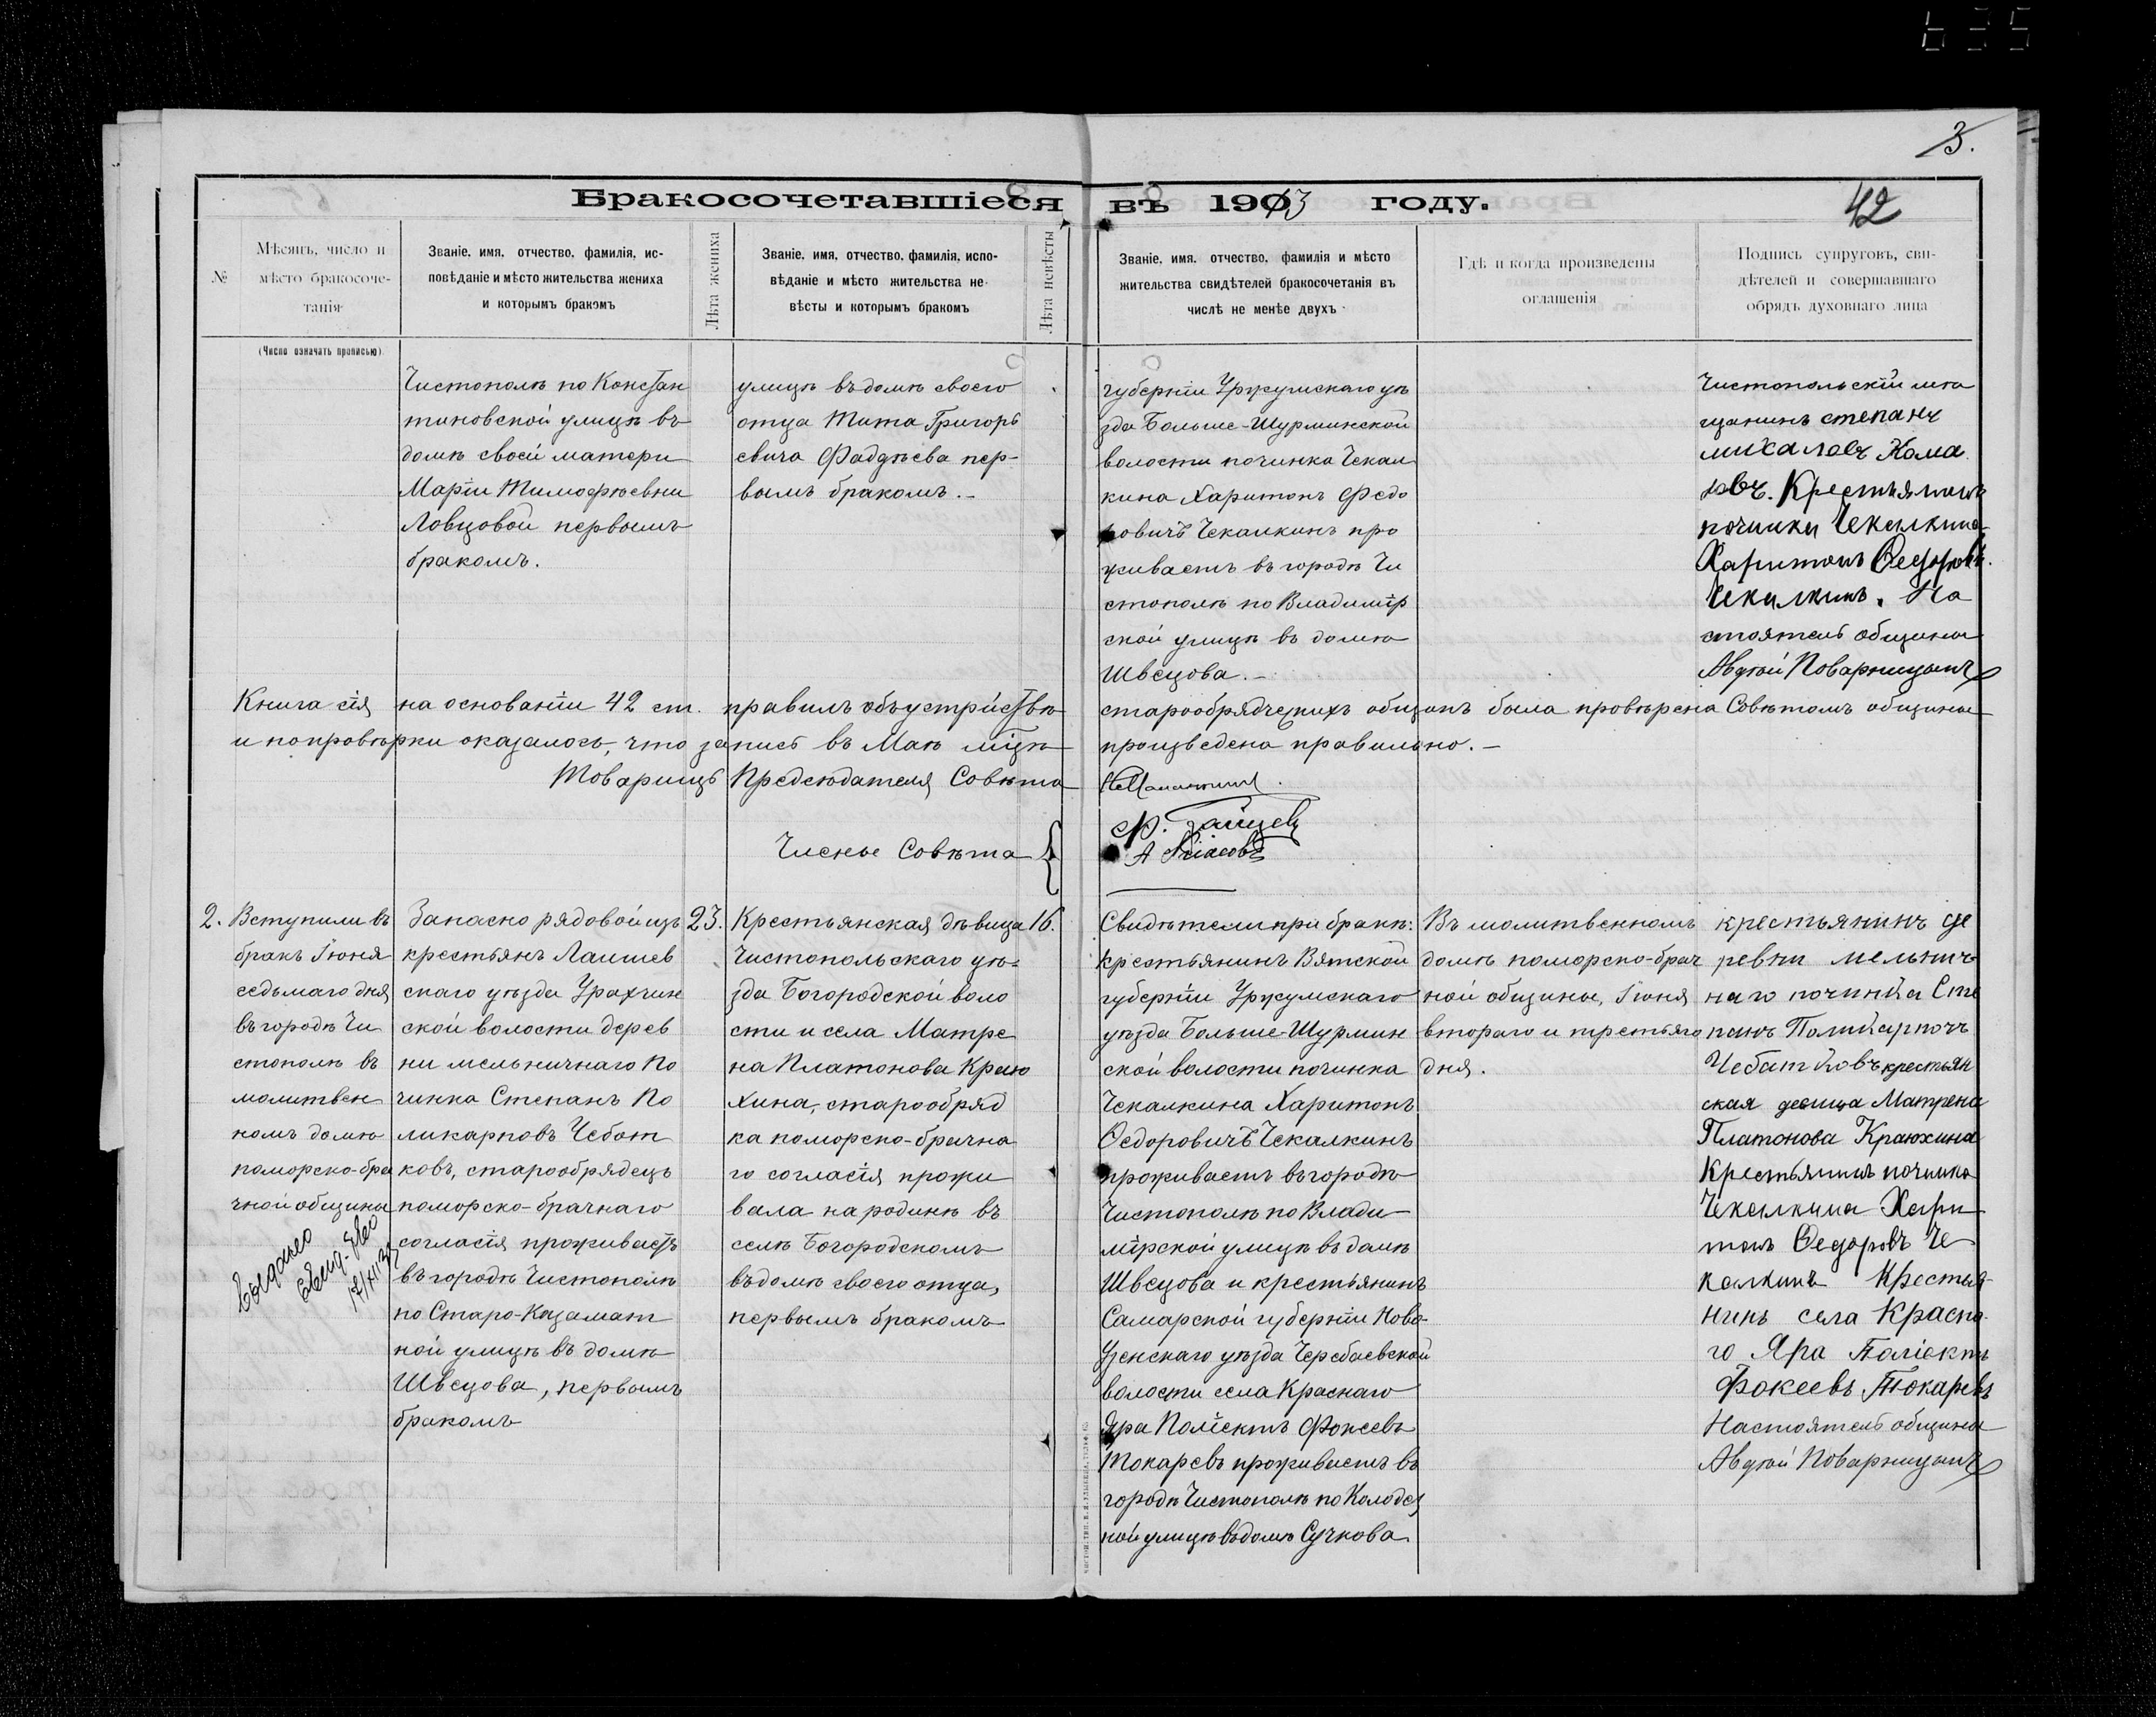 3.
42
Бракосочетавшіеся въ 1913 году.
№
Мѣсяцъ, число и
мѣсто бракосоче-
танія
(Число означать прописью)
Званіе, имя, отчество, фамилія, ис-
повѣданіе и мѣсто жительства жениха
и которымъ бракомъ
Лѣта жениха
Званіе, имя, отчество, фамилія, испо-
вѣданіе и мѣсто жительства не-
вѣсты и которымъ бракомъ
Лѣта невѣсты
Званіе, имя, отчество, фамилія и мѣсто
жительства свидѣтелей бракосочетанія въ
числѣ не менѣе двухъ
Гдѣ и когда произведены
оглашенія
Подпись супруговъ, сви-
дѣтелей и совершавшаго
обрядъ духовнаго лица
Чистополѣ по Констан
тиновской улицѣ въ
домѣ своей матери
Маріи Тимофѣевны
Ловцовой первымъ
бракомъ.
улицѣ въ домѣ своего
отца Тита Григорь
евича Фаддѣева пер-
вымъ бракомъ.-
губерніи Уржумскаго уѣ
зда Больше-Шурминской
волости починка Чекал
кина Харитонъ Федо
ровичъ Чекалкинъ про
живаетъ въ городѣ Чи
стополѣ по Владимір
ской улицѣ въ домѣ
Швецова.-
Чистопольскій мѣ
щанинъ степанъ
михаловъ
Крестьянинъ
починка Чекалкина
Харитонъ Ѳедоровъ
Чекалкинъ. На
стоятель общины
Авдѣй Поварницынъ
Книга сія на основаніи 42 ст. правилъ объ устройствѣ старообрядческихъ общинъ была провѣрена Совѣтомъ общины
и по провѣрки оказалось, что запись въ Маѣ мѣцѣ произведена правильно.-
Товарищъ Предсѣдателя Совѣта
Члены Совѣта
Ф. Зайцевъ
2.
Вступили въ
бракъ Іюня
седьмаго дня
въ городѣ Чи
стополѣ въ
молитвен
номъ домѣ
поморско-бра
чной общины
Выдано
17/XII 35
Запасно рядовой изъ
крестьянъ Лаишев
скаго уѣзда Урахчин
ской волости дерев
ни мельничнаго По
чинка Степанъ По
ликарповъ Чебот
ковъ, старообрядецъ
поморско-брачнаго
согласія проживаетъ
въ городѣ Чистополѣ
по Старо-Казамат
ной улицѣ въ домѣ
Швецова, первымъ
бракомъ
23.
Крестьянская дѣвица
Чистопольскаго уѣ-
зда Богородской воло
сти и села Матре
на Платонова Краю
хина, старообряд
ка поморско-брачна
го согласія прожи
вала на родинѣ въ
селѣ Богородскомъ
въ домѣ своего отца,
первымъ бракомъ
16.
Свидѣтели при бракѣ:
крестьянинъ Вятской
губерніи Уржумскаго
уѣзда Больше-Шурмин
ской волости починка
Чекалкина Харитонъ
Ѳедоровичъ Чекалкинъ
проживаетъ въ городѣ
Чистополѣ по Влади-
мірской улицѣ въ домѣ
Швецова и крестьянинъ
Самарской губерніи Ново-
Узенскаго уѣзда Черебаевской
волости села Краснаго
Яра Поліектъ Фокеевъ
Токаревъ проживаетъ въ
городѣ Чистополѣ по Колодез
ной улицѣ въ домѣ Сучкова.
Въ молитвенномъ
домѣ поморско-брач
ной общины, Іюня
втораго и третьяго
дня.
крестьянинъ де
ревни мельнич
наго починка Сте
панъ Поликарповъ
Чебатковъ крестьян
ская девица Матрена
Платонова Краюхина
Крестьянинъ починка
Чекалкина Хари
тонъ Ѳедоровъ Че
калкинъ Крестья
нинъ села Красна-
го Яра Поліектъ
Фокеевъ Токаревъ
Настоятель общины
Авдѣй Поварницынъ